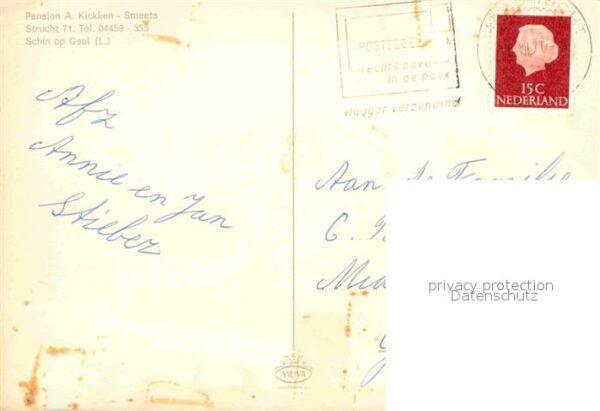 Pension A. Kickken - Smeets
Strucht 71. Tel. 04459 - 355
Schin op Geul (L.)
rechts boven
in de hoek
vlugger verzending
15 C
NEDERLAND
Afz
Annie en Jan
Stieber
Aan de Familie
C.
privacy protection
Datenschutz
MUVA